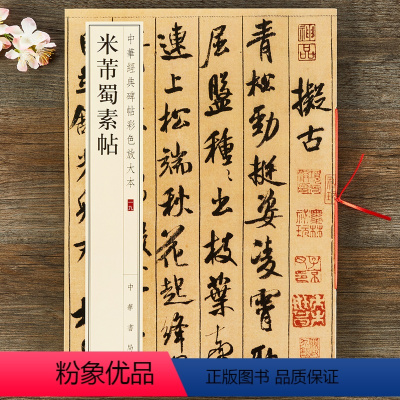 米芾蜀素帖
中華經典碑帖彩色放大本
中華書局
擬古
青松勁挺姿凌霄恥
屈盤種〻出枝葉
連上松端秋花起絳
粉象优品
电子发票